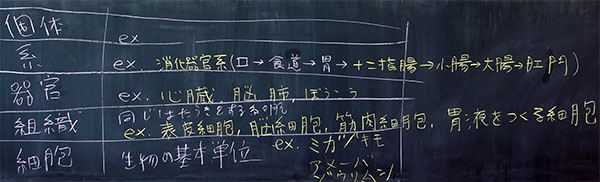 個体 ex.
系 ex. 消化器官系(口→食道→胃→十二指腸→小腸→大腸→肛門)
器官 ex. 心臓, 脳, 肺, ぼうこう
同じはたらきをする細胞
組織 ex. 表皮細胞, 脳細胞, 筋肉細胞, 胃液をつくる細胞
細胞 生物の基本単位 ex. ミカヅキモ
アメーバ
ゾウリムシ